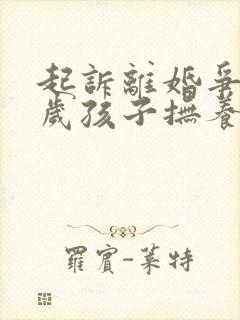 起訴離婚爭
歲孩子撫養
羅賓-萊特